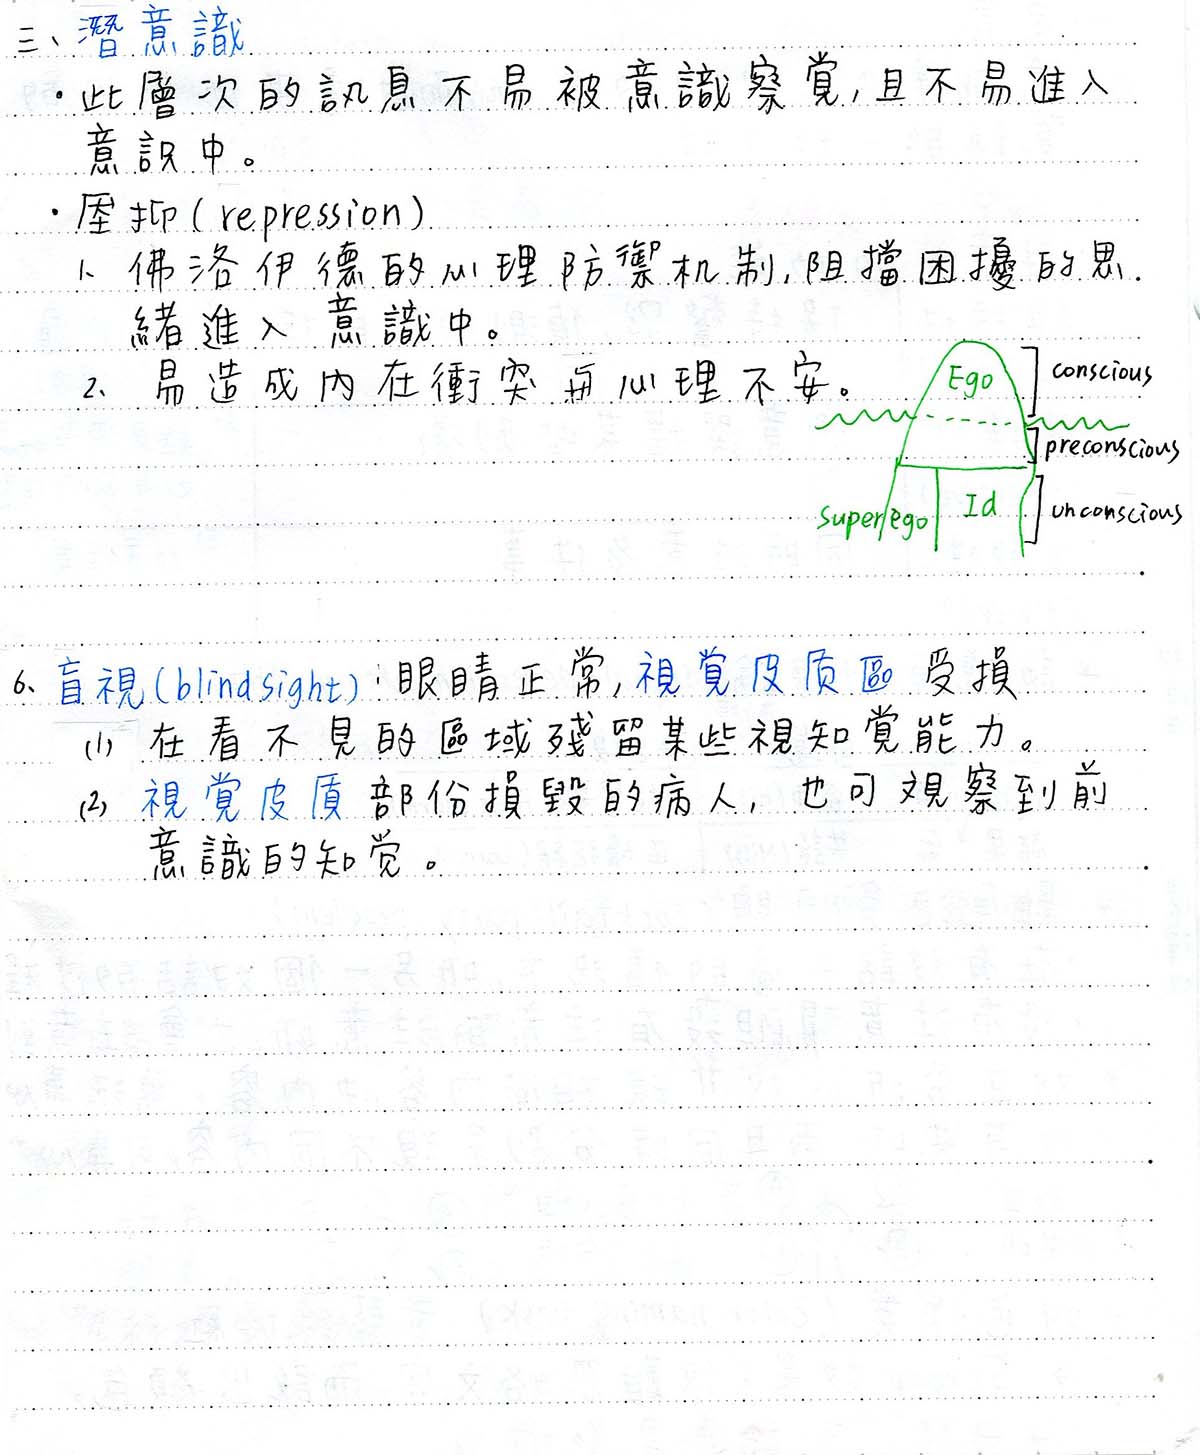 三、潛意識
・此層次的訊息不易被意識察覺,且不易進入
意識中。
・壓抑(repression)
1、佛洛伊德的心理防禦机制,阻擋困擾的思
緒進入意識中。
2、易造成內在衝突再心理不安。
Ego
conscious
preconscious
Superego
Id
unconscious
6、盲視(blindsight):眼睛正常,視覺皮质區受損
(1) 在看不見的區域殘留某些視知覺能力。
(2) 視覺皮質部份損毀的病人,也可觀察到前
意識的知觉。